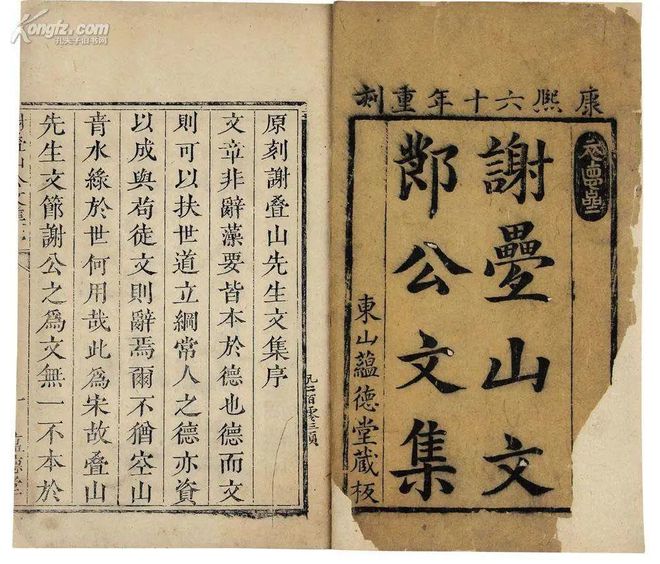 康熙六十年重刻
謝疊山文
節公文集
東山蘊德堂蔵板
原刻謝叠山先生文集序
文章非辭藻要皆本於德也德而文
則可以扶世道立綱常人之德亦資
以成與苟徒文則辭焉爾不猶空山
青水綠於世何用哉此爲宋故叠山
先生文節謝公之爲文無一不本於
凡二百零三頁
Kongfz.com
孔夫子旧书网